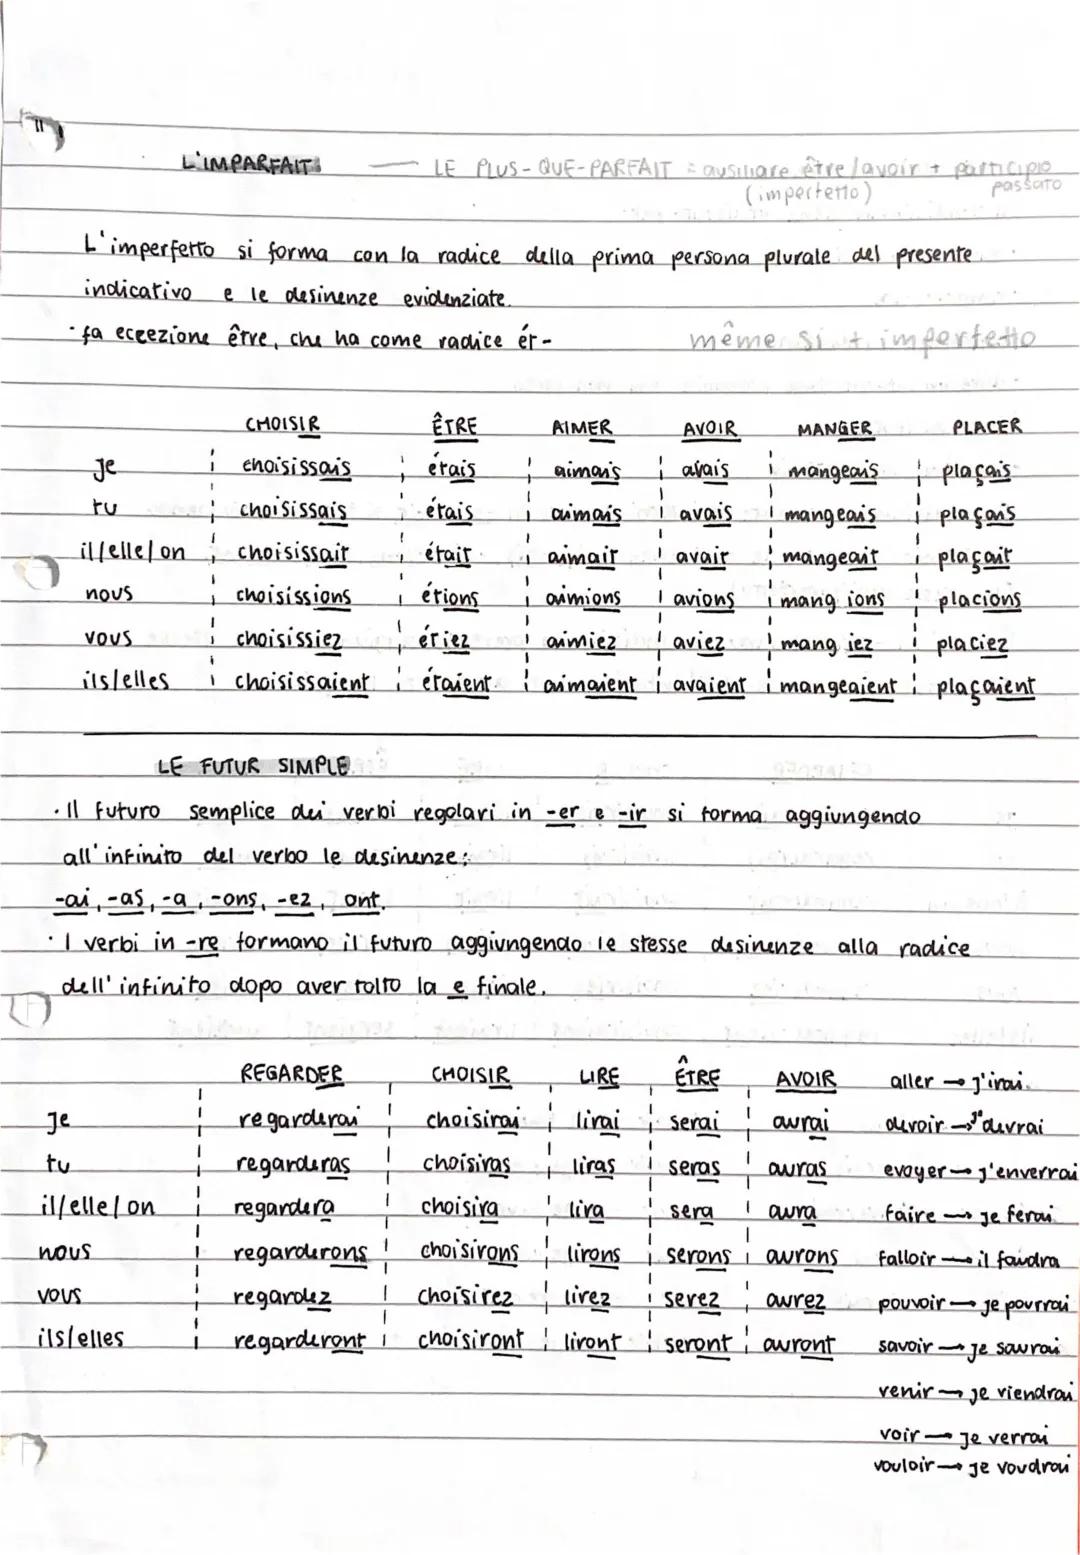 L'IMPARFAIT — LE PLUS-QUE-PARFAIT = ausiliare être/avoir + participio
(imperfetto) passato
L'imperfetto si forma con la radice della prima persona plurale del presente
indicativo e le desinenze evidenziate.
· fa eccezione être, che ha come radice ét- même si + imperfetto
CHOISIR ÊTRE AIMER AVOIR MANGER PLACER
je choisissais étais aimais avais mangeais plaçais
tu choisissais étais aimais avais mangeais plaçais
il/elle/on choisissait était aimait avait mangeait plaçait
nous choisissions étions aimions avions mang ions placions
vous choisissiez étiez aimiez aviez mang iez placiez
ils/elles choisissaient étaient aimaient avaient mangeaient plaçaient
LE FUTUR SIMPLE
· Il futuro semplice dei verbi regolari in -er e -ir si forma aggiungendo
all'infinito del verbo le desinenze:
-ai, -as, -a, -ons, -ez, ont.
· I verbi in -re formano il futuro aggiungendo le stesse desinenze alla radice
dell'infinito dopo aver tolto la e finale.
REGARDER CHOISIR LIRE ÊTRE AVOIR aller → j'irai.
je regarderai choisirai lirai serai aurai devoir → je devrai
tu regarderas choisiras liras seras auras evoyer → j'enverrai
il/elle/on regardera choisira lira sera aura faire → je ferai
nous regarderons choisirons lirons serons aurons falloir → il faudra
vous regardez choisirez lirez serez aurez pouvoir → je pourrai
ils/elles regarderont choisiront liront seront auront savoir → je saurai
venir → je viendrai
voir → je verrai
vouloir → je voudrai